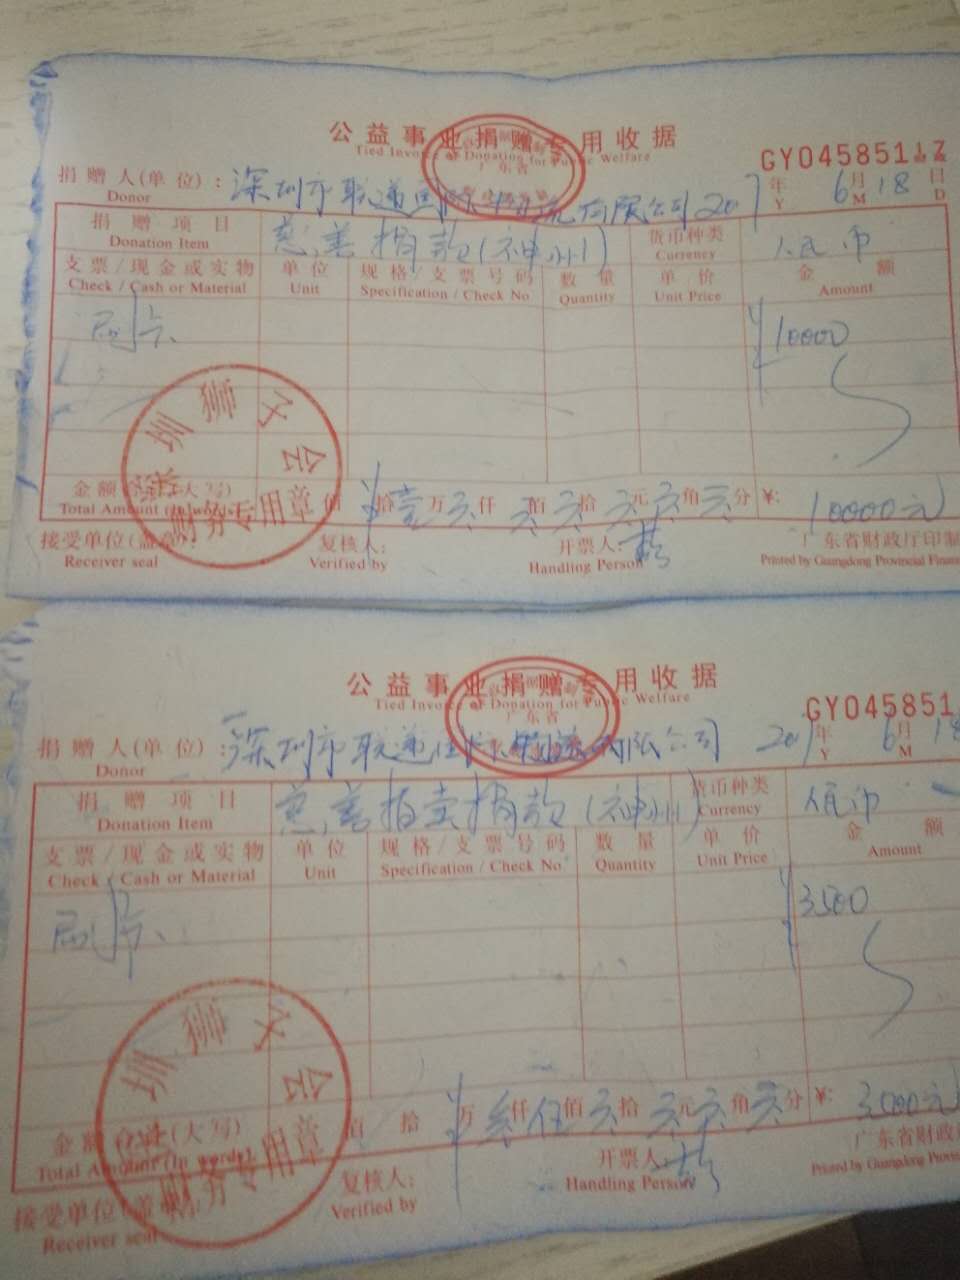 公益事业捐赠专用收据
Tied Invoice of Donation for Public Welfare
广东省
GY045851
捐赠人(单位): 深圳市联递国际物流有限公司 201 年 6月 18日
Donor Y M D
捐赠项目 慈善捐款(神州) 货币种类 人民币
Donation Item Currency
支票/现金或实物 单位 规格/支票号码 数量 单价 金额
Check / Cash or Material Unit Specification / Check No Quantity Unit Price Amount
刷卡 ¥10000
深圳狮子会
财务专用章
金额合计(大写) 佰 拾 壹万 零仟 零佰 零拾 零元 零角 零分 ¥: 10000元
Total Amount (In words)
接受单位(盖章): 复核人: 开票人: 广东省财政厅印制
Receiver seal Verified by Handling Person Printed by Guangdong Provincial Finan
公益事业捐赠专用收据
Tied Invoice of Donation for Public Welfare
广东省
GY045851
捐赠人(单位): 深圳市联递 有限公司 201 年 6月 18
Donor Y M
捐赠项目 慈善拍卖捐款(神州) 货币种类 人民币
Donation Item Currency
支票/现金或实物 单位 规格/支票号码 数量 单价 金额
Check / Cash or Material Unit Specification / Check No Quantity Unit Price Amount
刷卡 ¥3500
圳狮子会
财务专用章
金额合计(大写) 佰 拾 万 叁仟 伍佰 零拾 零元 零角 零分 ¥: 3500元
Total Amount (In words)
接受单位(盖章): 复核人: 开票人: 广东省财政
Receiver seal Verified by Handling Person Printed by Guangdong Provin